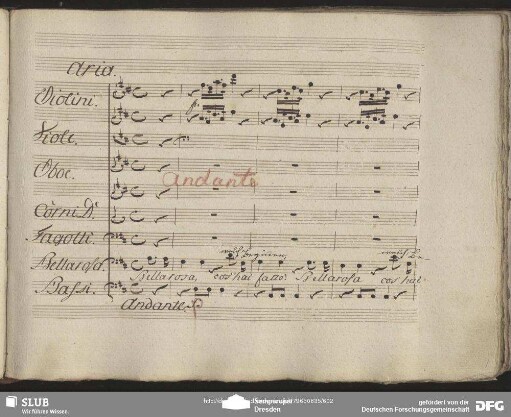 Aria.
Violini.
Viole.
Oboe.
Andante
Corni D.
Fagotti.
Bellarosa.
Bellarosa, cos'hai fatto? Bellarosa cos'hai
Bassi.
Andante.
SLUB
Wir führen Wissen.
Sachsen
Dresden
gefördert von der
Deutschen Forschungsgemeinschaft
DFG